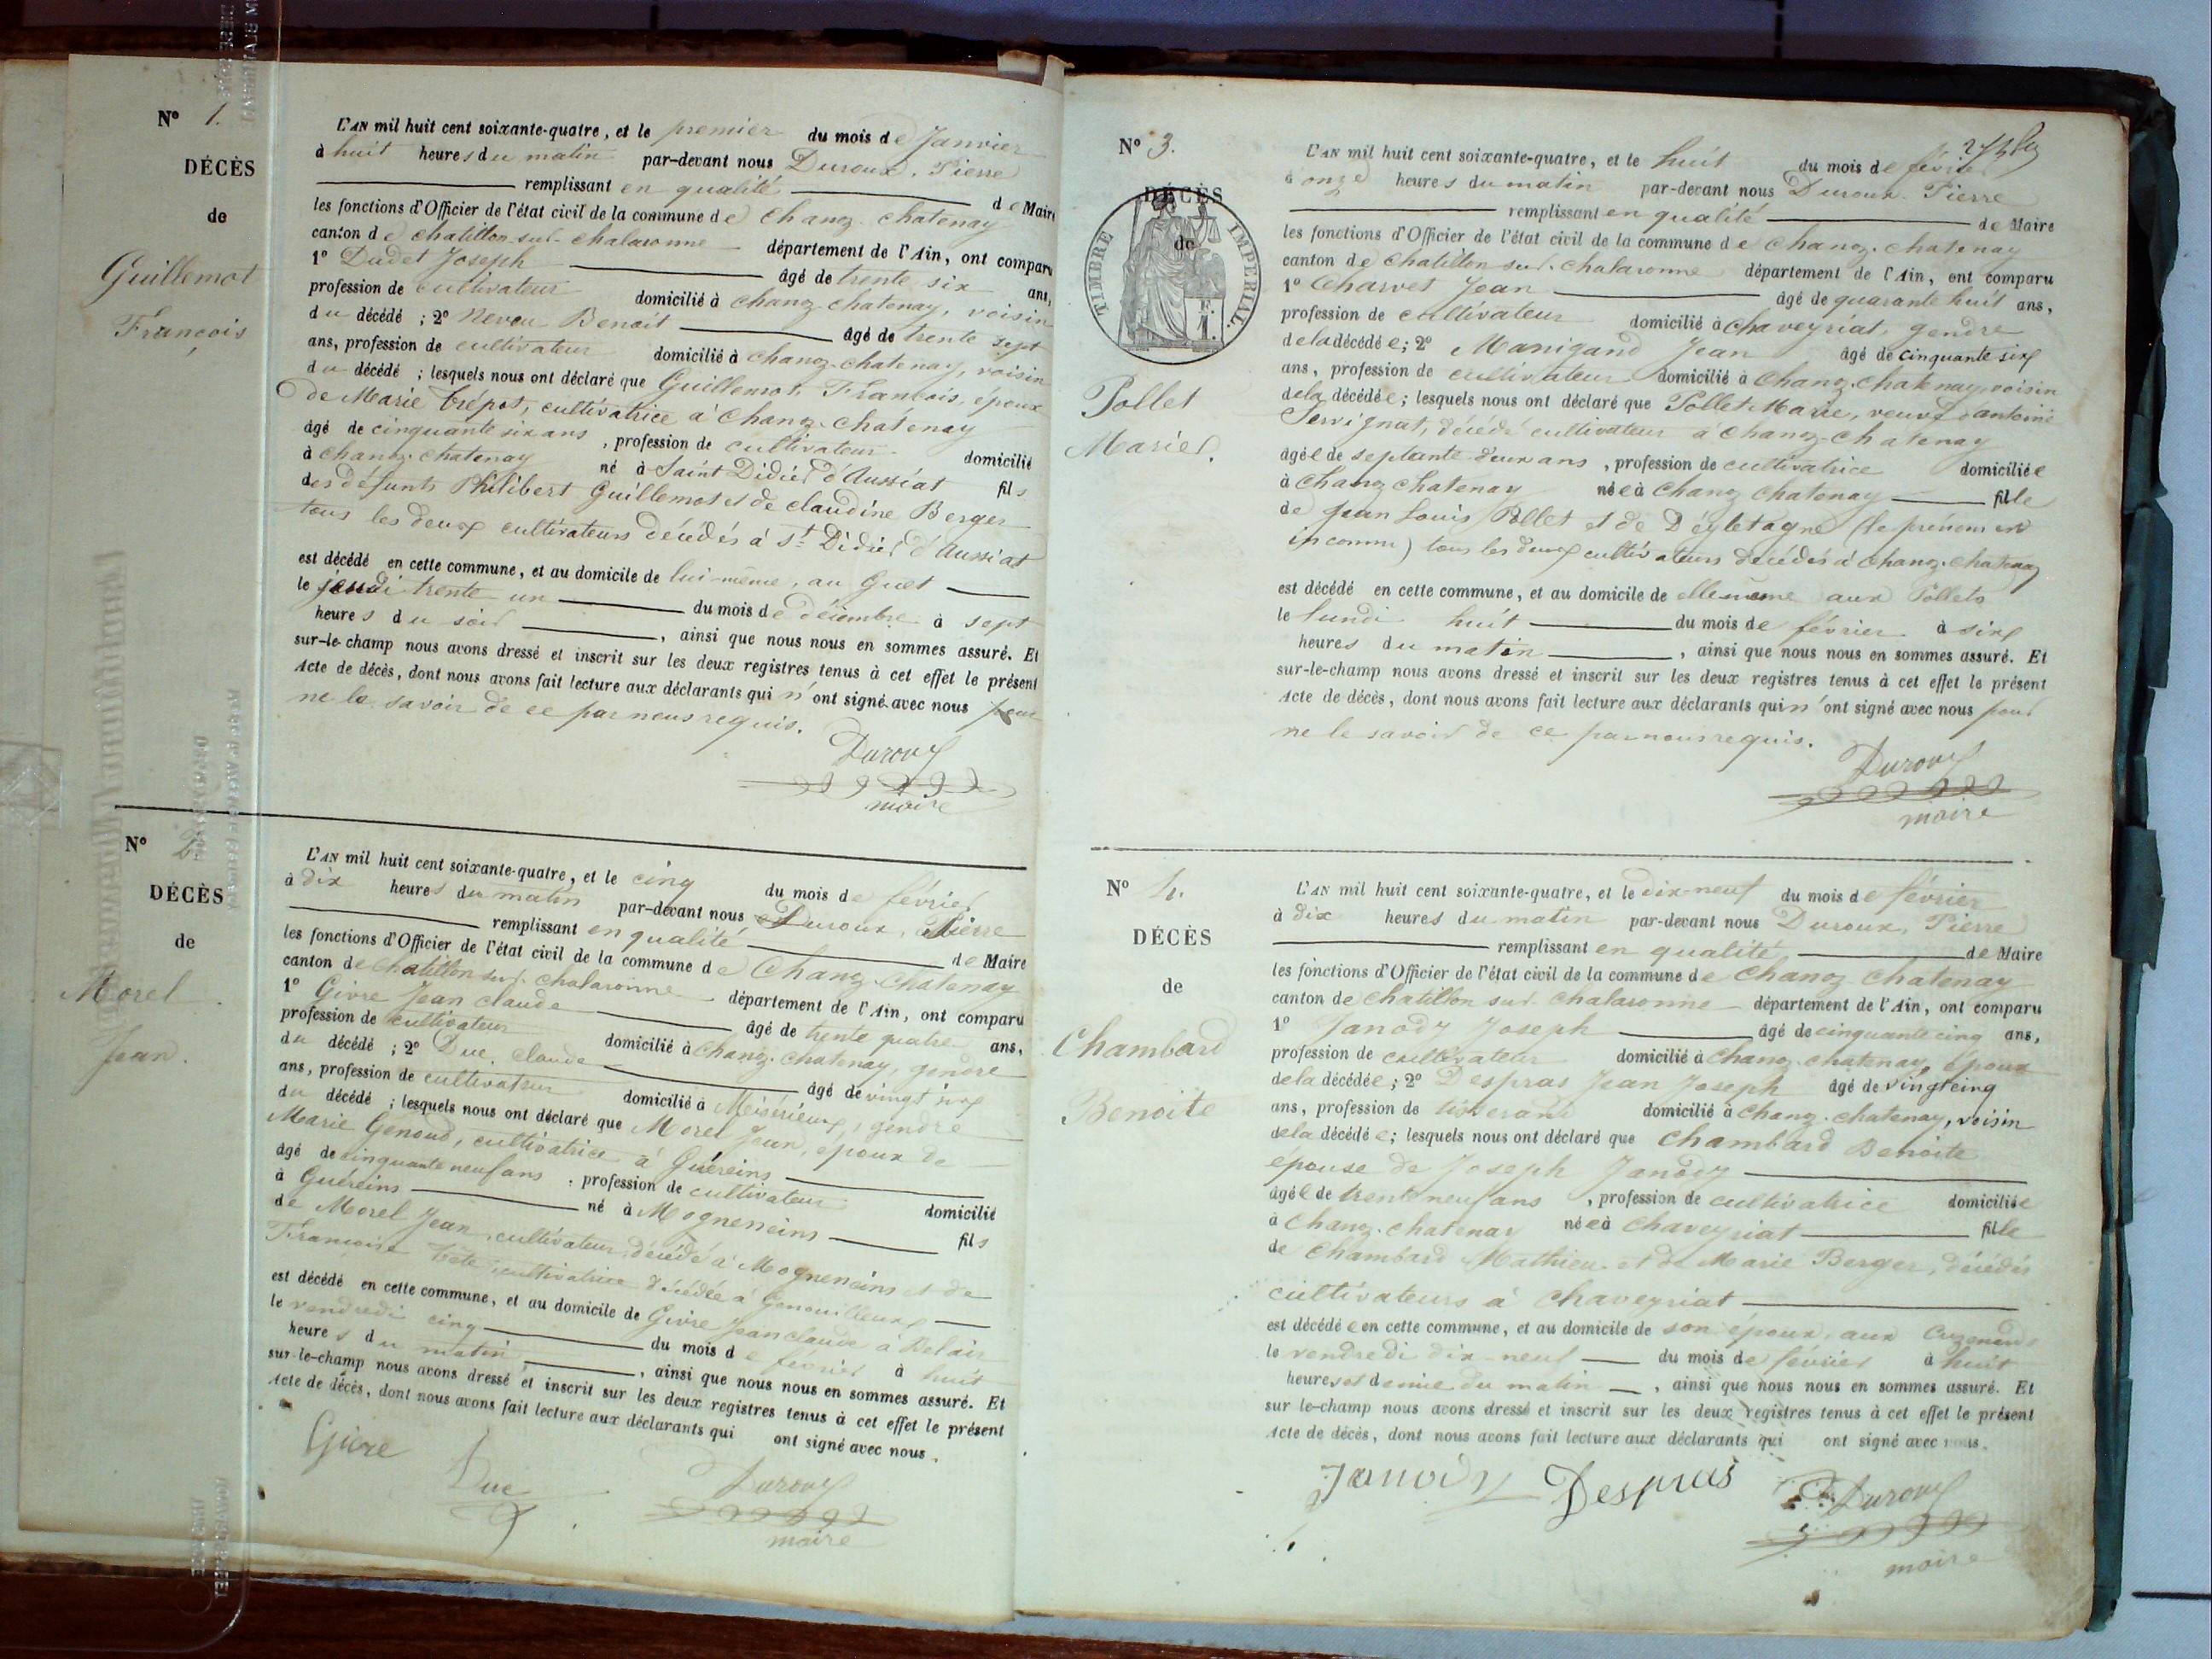 N° 1.
DÉCÈS
de
Guillemot
François
L'AN mil huit cent soixante-quatre, et le premier du mois de Janvier
à huit heures du matin par-devant nous Duroux, Pierre
remplissant en qualité de Maire
les fonctions d'Officier de l'état civil de la commune de Chanoz-chatenay
canton de chatillon-sur-chalaronne département de l'Ain, ont comparu
1° Dudet Joseph âgé de trente six ans,
profession de cultivateur domicilié à chanoz-chatenay, voisin
du décédé ; 2° Neveu Benoit âgé de trente sept
ans, profession de cultivateur domicilié à chanoz-chatenay, voisin
du décédé ; lesquels nous ont déclaré que Guillemot François, époux
de Marie Trépot, cultivatrice à Chanoz-chatenay
âgé de cinquante six ans, profession de cultivateur domicilié
à chanoz-chatenay né à Saint Didier d'Aussiat fils
des défunts Philibert Guillemot et de claudine Berger
tous les deux cultivateurs décédés à St Didier d'Aussiat
est décédé en cette commune, et au domicile de lui-même, au Guet
le jeudi trente un du mois de décembre à sept
heures du soir, ainsi que nous nous en sommes assuré. Et
sur-le-champ nous avons dressé et inscrit sur les deux registres tenus à cet effet le présent
Acte de décès, dont nous avons fait lecture aux déclarants qui n'ont signé avec nous pour
ne le savoir de ce par nous requis.
Duroux
maire
N° 2.
DÉCÈS
de
Morel
Jean.
L'AN mil huit cent soixante-quatre, et le cinq du mois de février
à dix heures du matin par-devant nous Duroux, Pierre
remplissant en qualité de Maire
les fonctions d'Officier de l'état civil de la commune de Chanoz-Chatenay
canton de chatillon sur chalaronne département de l'Ain, ont comparu
1° Givre Jean claude âgé de trente quatre ans,
profession de cultivateur domicilié à chanoz-chatenay, gendre
du décédé ; 2° Duc, Claude âgé de vingt six
ans, profession de cultivateur domicilié à Meisérieux, gendre
du décédé ; lesquels nous ont déclaré que Morel Jean, époux de
Marie Genoud, cultivatrice à Guéreins
âgé de cinquante neuf ans, profession de cultivateur domicilié
à Guéreins né à Mogneneins fils
de Morel Jean, cultivateur, décédé à Mogneneins et de
Françoise cultivatrice décédée à Genouilleux
est décédé en cette commune, et au domicile de Givre Jean claude à Belair
le vendredi cinq du mois de février à huit
heures du matin, ainsi que nous nous en sommes assuré. Et
sur-le-champ nous avons dressé et inscrit sur les deux registres tenus à cet effet le présent
Acte de décès, dont nous avons fait lecture aux déclarants qui ont signé avec nous.
Givre
Duc
Duroux
maire
N° 3.
DÉCÈS
de
TIMBRE IMPERIAL.
F.
1.
Pollet
Marie.
L'AN mil huit cent soixante-quatre, et le huit du mois de février
à onze heures du matin par-devant nous Duroux Pierre
remplissant en qualité de Maire
les fonctions d'Officier de l'état civil de la commune de Chanoz-chatenay
canton de chatillon-sur-chalaronne département de l'Ain, ont comparu
1° Charvet Jean âgé de quarante huit ans,
profession de cultivateur domicilié à chaveyriat, gendre
de la décédée ; 2° Manigand Jean âgé de cinquante six
ans, profession de cultivateur domicilié à Chanoz-chatenay, voisin
de la décédée ; lesquels nous ont déclaré que Pollet Marie, veuve d'antoine
Servignat, décédé cultivateur à chanoz-chatenay
âgée de septante-deux ans, profession de cultivatrice domiciliée
à Chanoz chatenay née à Chanoz Chatenay fille
de Jean Louis Pollet et de Déyletagne (le prénom en
inconnu) tous les deux cultivateurs décédés à chanoz-chatenay
est décédé en cette commune, et au domicile de elle même aux Pollets
le lundi huit du mois de février à six
heures du matin, ainsi que nous nous en sommes assuré. Et
sur-le-champ nous avons dressé et inscrit sur les deux registres tenus à cet effet le présent
Acte de décès, dont nous avons fait lecture aux déclarants qui n'ont signé avec nous pour
ne le savoir de ce par nous requis.
Duroux
maire
N° 4.
DÉCÈS
de
Chambard
Benoite
L'AN mil huit cent soixante-quatre, et le dix-neuf du mois de février
à dix heures du matin par-devant nous Duroux, Pierre
remplissant en qualité, de Maire
les fonctions d'Officier de l'état civil de la commune de Chanoz-chatenay
canton de chatillon sur chalaronne département de l'Ain, ont comparu
1° Janody Joseph âgé de cinquante cinq ans,
profession de cultivateur domicilié à chanoz-chatenay, époux
de la décédée ; 2° Despras Jean Joseph âgé de vingt cinq
ans, profession de tisserand domicilié à chanoz-chatenay, voisin
de la décédée ; lesquels nous ont déclaré que Chambard Benoite
épouse de Joseph Janody
âgée de trente neuf ans, profession de cultivatrice domiciliée
à chanoz-chatenay née à chaveyriat fille
de Chambard Mathieu et de Marie Berger, décédés
cultivateurs à chaveyriat
est décédée en cette commune, et au domicile de son époux, aux
le vendredi dix-neuf du mois de février à huit
heures et demie du matin, ainsi que nous nous en sommes assuré. Et
sur le-champ nous avons dressé et inscrit sur les deux registres tenus à cet effet le présent
Acte de décès, dont nous avons fait lecture aux déclarants qui ont signé avec nous.
Janody Despras Duroux
maire